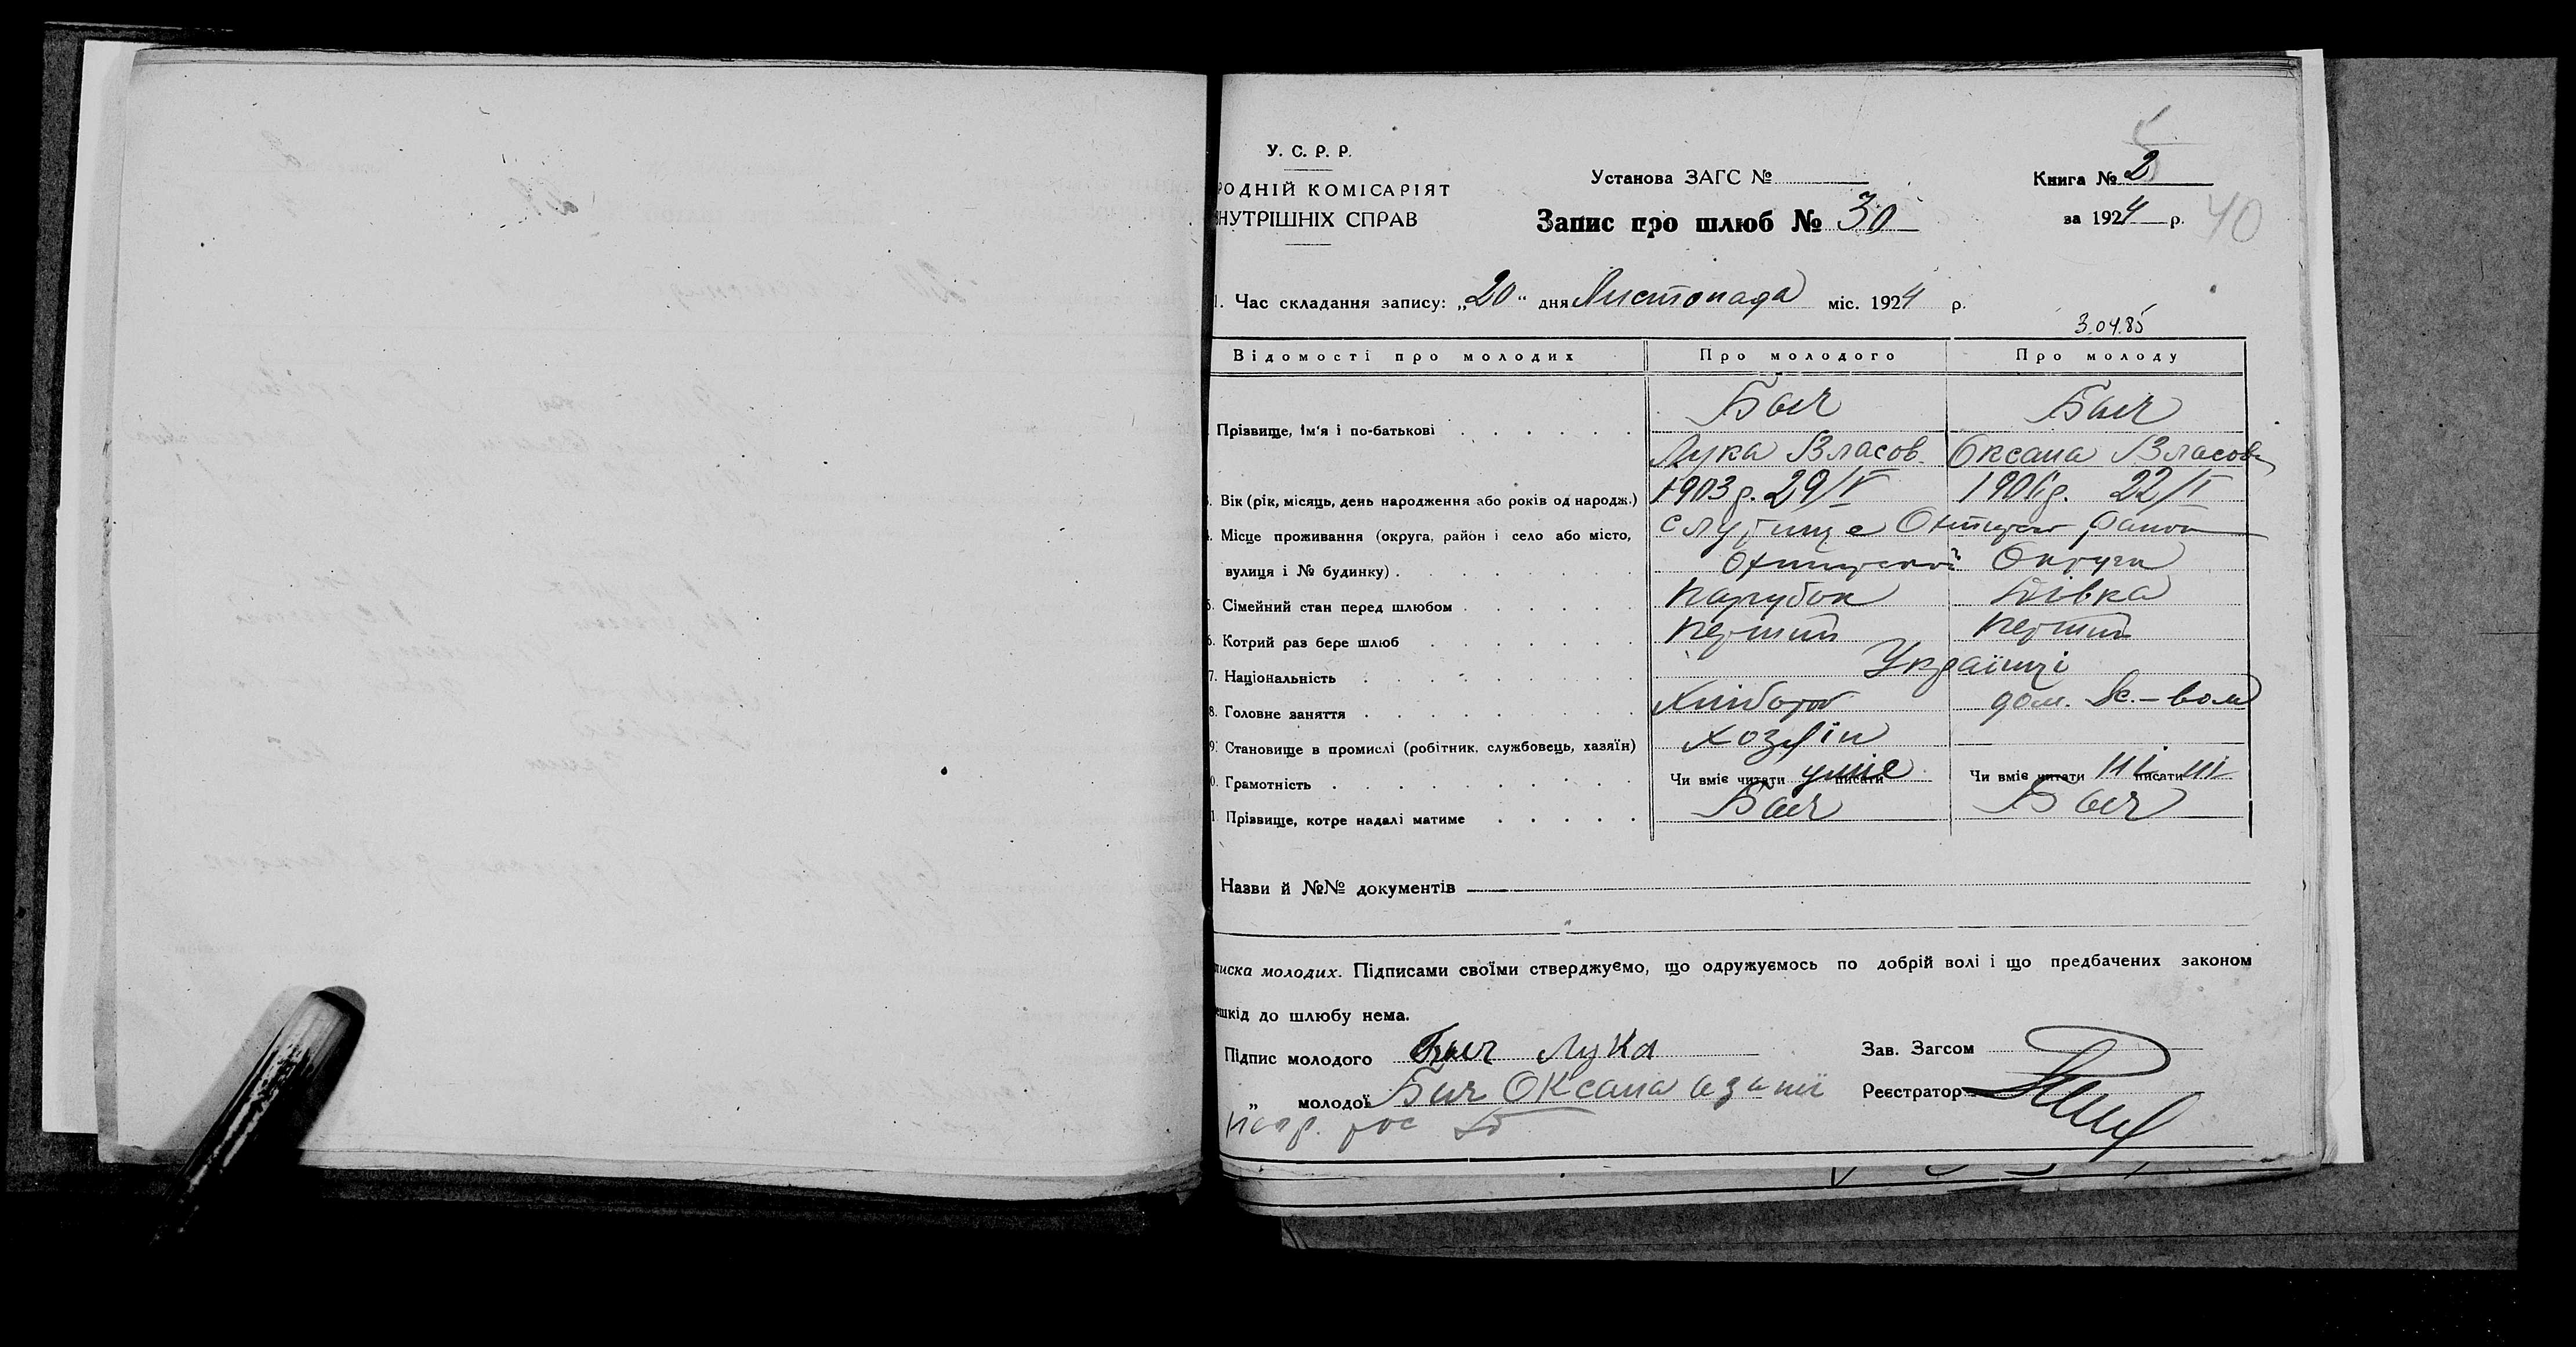 У. С. Р. Р.
РОДНІЙ КОМІСАРІЯТ
НУТРІШНІХ СПРАВ
Установа ЗАГС №
Запис про шлюб № 30
Книга № 2
за 1924 р.
40
1. Час складання запису: „20“ дня Листопада міс. 1924 р.
3.04.85
Відомості про молодих Про молодого Про молоду
Прізвище, ім'я і по-батькові Бич Бич
Лука Власов. Оксана Власов
3. Вік (рік, місяць, день народження або років од народж.) 1903 р. 29/V 22/I
4. Місце проживання (округа, район і село або місто,
вулиця і № будинку) Округи
5. Сімейний стан перед шлюбом Парубок Дівка
6. Котрий раз бере шлюб Перший Перший
7. Національність Українці
8. Головне заняття Хлібороб дом. х.-вом
9. Становище в промислі (робітник, службовець, хазяїн) Хозяїн
0. Грамотність Чи вміє читати уміє писати Чи вміє читати ні писати ні
1. Прізвище, котре надалі матиме Бич Бич
Назви й №№ документів
писка молодих. Підписами своїми стверджуємо, що одружуємось по добрій волі і що предбачених законом
ешкід до шлюбу нема.
Підпис молодого Бич Лука Зав. Загсом
„ молодої Бич Оксана Реєстратор